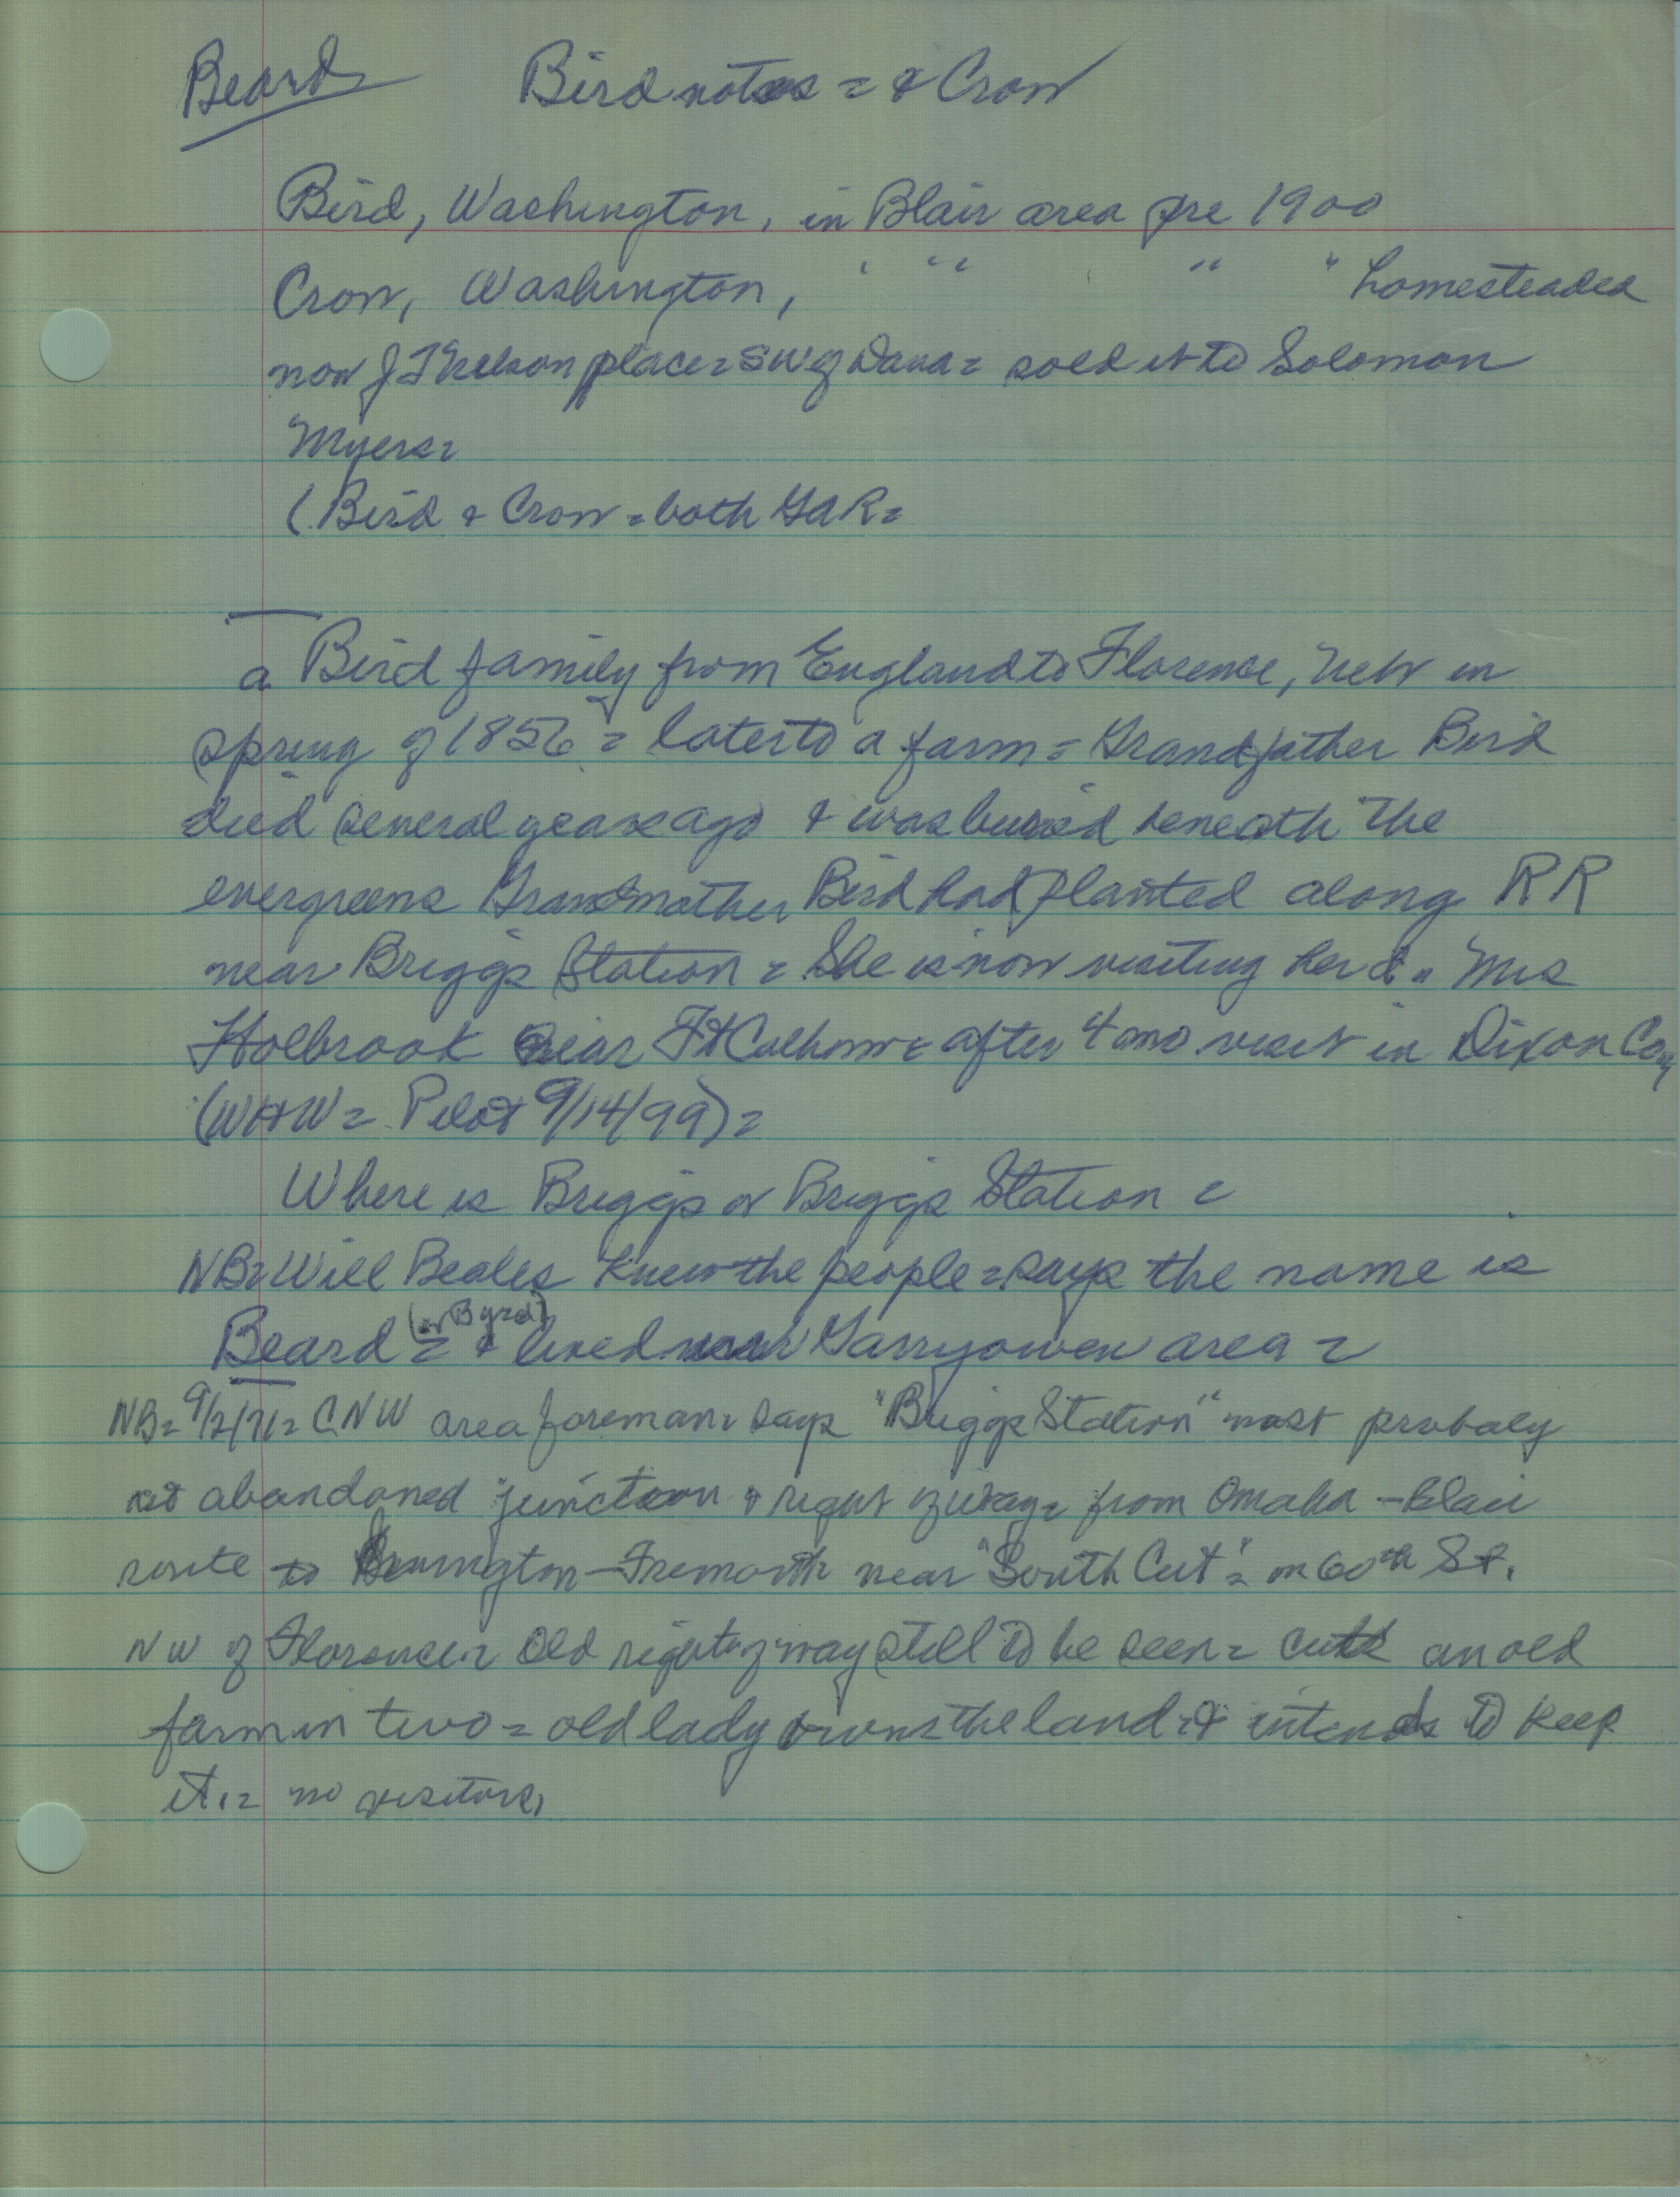 Beard Bird notes = & Crow
Bird, Washington, in Blair area pre 1900
Crow, Washington, " " " " homesteaded
now J T Nelson place = SW of Dana = sold it to Solomon
Myers =
( Bird & Crow = both GAR =
a Bird family from England to Florence, Neb in
spring of 1856 = later to a farm = Grandfather Bird
died several years ago & was buried beneath the
evergreens Grandmother Bird had planted along RR
near Briggs Station = She is now visiting her d. = Mrs
Holbrook near Ft Calhoun = after 4 mo visit in Dixon Co
(W H W = Pilot 9/14/99) =
Where is Briggs or Briggs Station =
NB = Will Beales knew the people = says the name is
Beard (or Byrd) = & lived near Garryowen area =
NB = 9/2/71 = CNW area foreman = says "Briggs Station" most probaly
abandoned junction & right of way = from Omaha - Blair
route to Bennington - Fremont near "South Cut" = on 60th St.
NW of Florence = Old right of way still to be seen = cuts an old
farm in two = old lady owns the land & intends to keep
it. = no visitors.